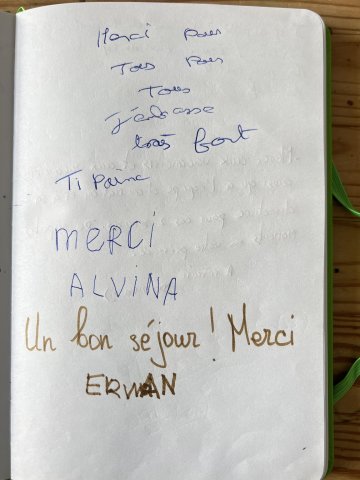 Merci pour
Tous pour
Tous
très fort
Ti
merci
ALVINA
Un bon séjour ! Merci
ERWAN